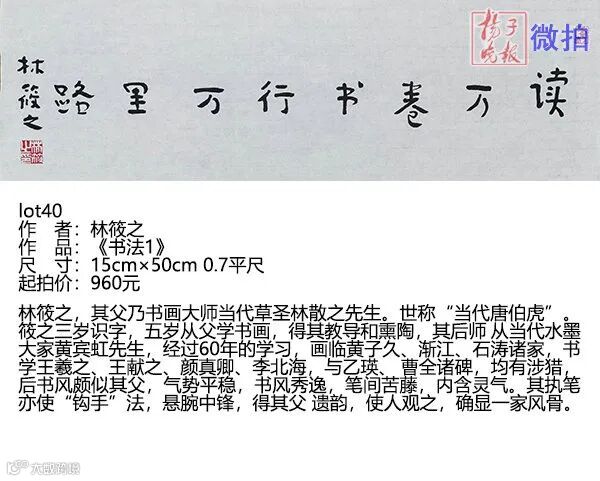 扬子晚报
微拍
读万卷书行万里路
林筱之
lot40
作 者：林筱之
作 品：《书法1》
尺 寸：15cm×50cm 0.7平尺
起拍价：960元
林筱之，其父乃书画大师当代草圣林散之先生。世称“当代唐伯虎”。
筱之三岁识字，五岁从父学书画，得其教导和熏陶，其后师 从当代水墨
大家黄宾虹先生，经过60年的学习，画临黄子久、渐江、石涛诸家，书
学王羲之、王献之、颜真卿、李北海，与乙瑛、曹全诸碑，均有涉猎，
后书风颇似其父，气势平稳，书风秀逸，笔间苦藤，内含灵气。其执笔
亦使“钩手”法，悬腕中锋，得其父 遗韵，使人观之，确显一家风骨。